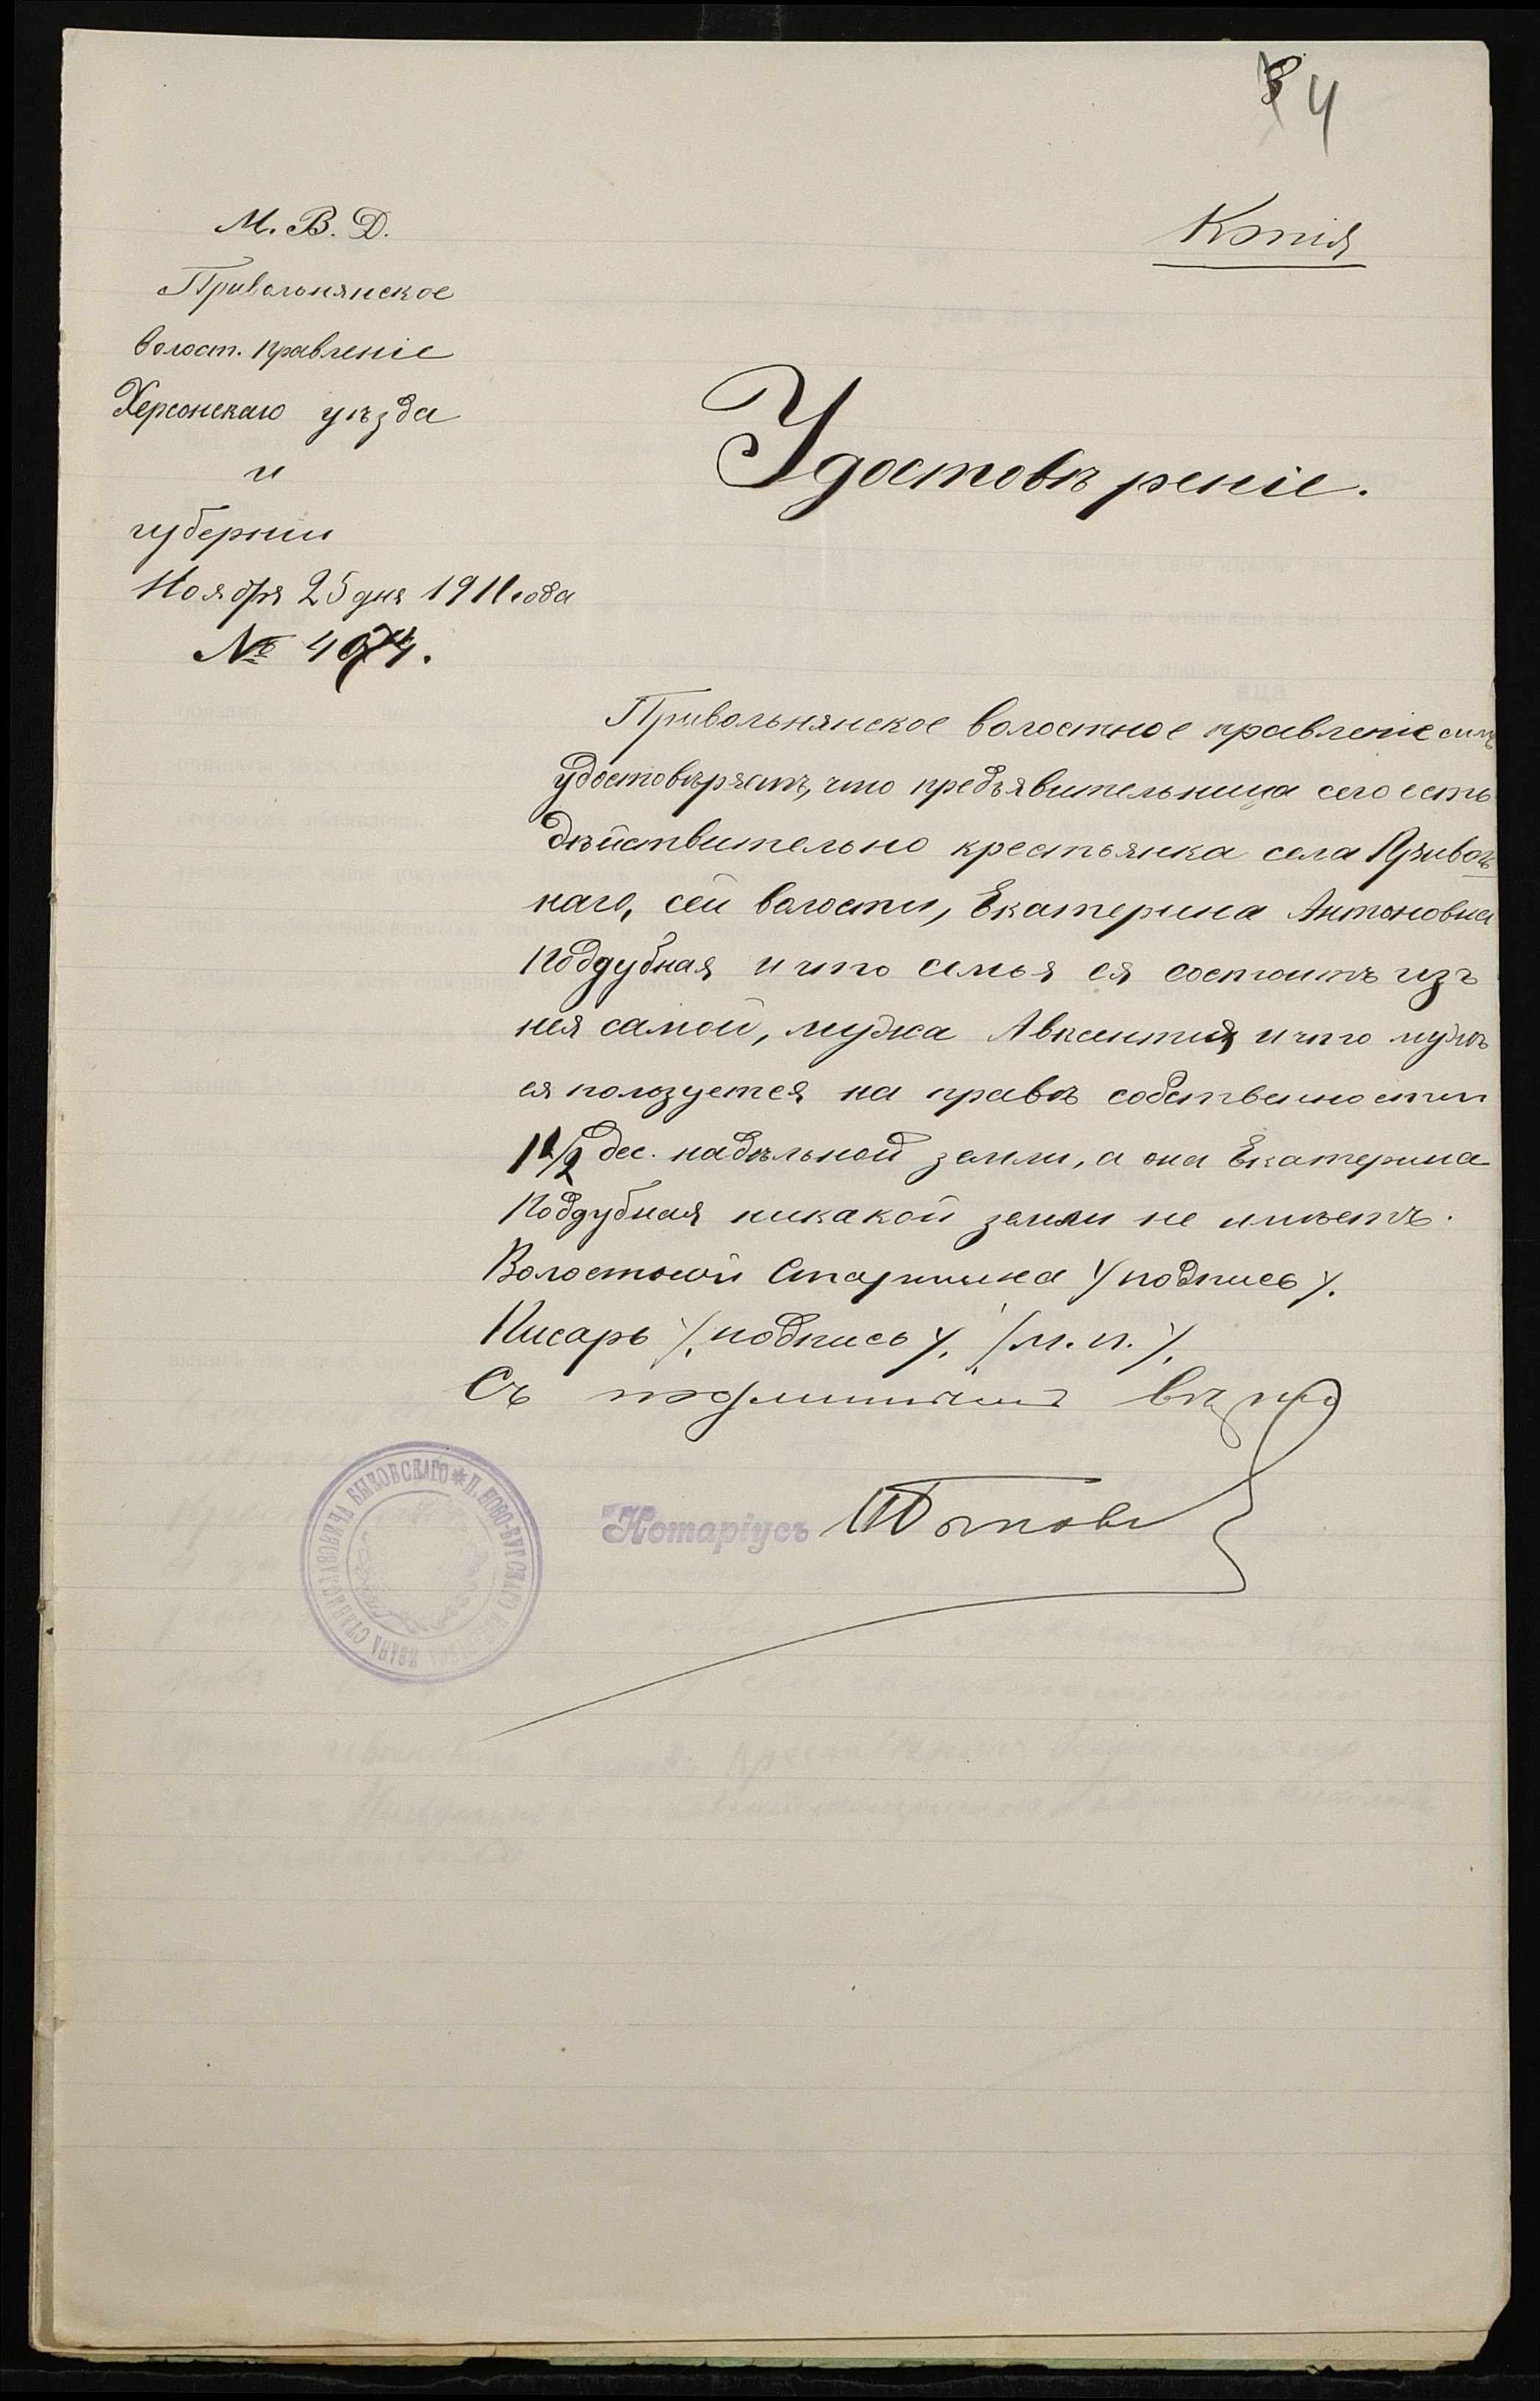 4
М. В. Д.
Копія
Привольнянское
волост. правленіе
Херсонскаго уѣзда
и
губерніи
Ноября 25 дня 1911 года
№ 4974.
Удостовѣреніе.
Привольнянское волостное правленіе симъ
удостовѣряетъ, что предъявительница сего есть
дѣйствительно крестьянка села Приволь
наго, сей волости, Екатерина Антоновна
Поддубная и что семья ея состоитъ изъ
нея самой, мужа Авксентія и что мужъ
ея пользуется на правѣ собственности
1 1/2 дес. надѣльной земли, а она Екатерина
Поддубная никакой земли не имѣетъ.
Волостной Старшина /подпись/.
Писарь /подпись/. /м. п./.
Съ подлиннымъ вѣрно
Нотаріусъ
ИВАНА СТАНИСЛАВОВИЧА БЫКОВСКАГО * П. НОВО-БУГСКАГО НОТАРІУСА